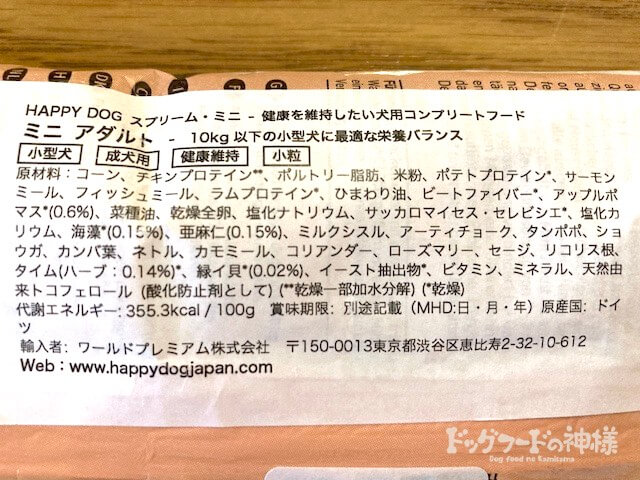 HAPPY DOG スプリーム・ミニ - 健康を維持したい犬用コンプリートフード
ミニ アダルト - 10kg 以下の小型犬に最適な栄養バランス
小型犬 成犬用 健康維持 小粒
原材料：コーン、チキンプロテイン**、ポルトリー脂肪、米粉、ポテトプロテイン*、サーモン
ミール、フィッシュミール、ラムプロテイン*、ひまわり油、ビートファイバー*、アップルポ
マス*(0.6%)、菜種油、乾燥全卵、塩化ナトリウム、サッカロマイセス・セレビシエ*、塩化カ
リウム、海藻*(0.15%)、亜麻仁(0.15%)、ミルクシスル、アーティチョーク、タンポポ、ショ
ウガ、カンバ葉、ネトル、カモミール、コリアンダー、ローズマリー、セージ、リコリス根、
タイム(ハーブ：0.14%)*、緑イ貝*(0.02%)、イースト抽出物*、ビタミン、ミネラル、天然由
来トコフェロール (酸化防止剤として) (**乾燥一部加水分解) (*乾燥)
代謝エネルギー: 355.3kcal / 100g 賞味期限：別途記載（MHD:日・月・年）原産国: ドイ
ツ
輸入者：ワールドプレミアム株式会社 〒150-0013東京都渋谷区恵比寿2-32-10-612
Web：www.happydogjapan.com
ドッグフードの神様
Dog food no Kamisama